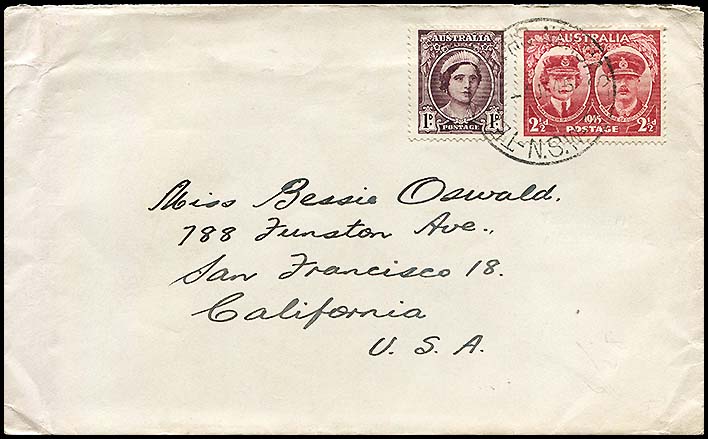 AUSTRALIA
1D 1D
POSTAGE
AUSTRALIA
2½D 1945 2½D
POSTAGE
N.S.W
Miss Bessie Oswald.
788 Funston Ave.,
San Francisco 18.
California
U. S. A.